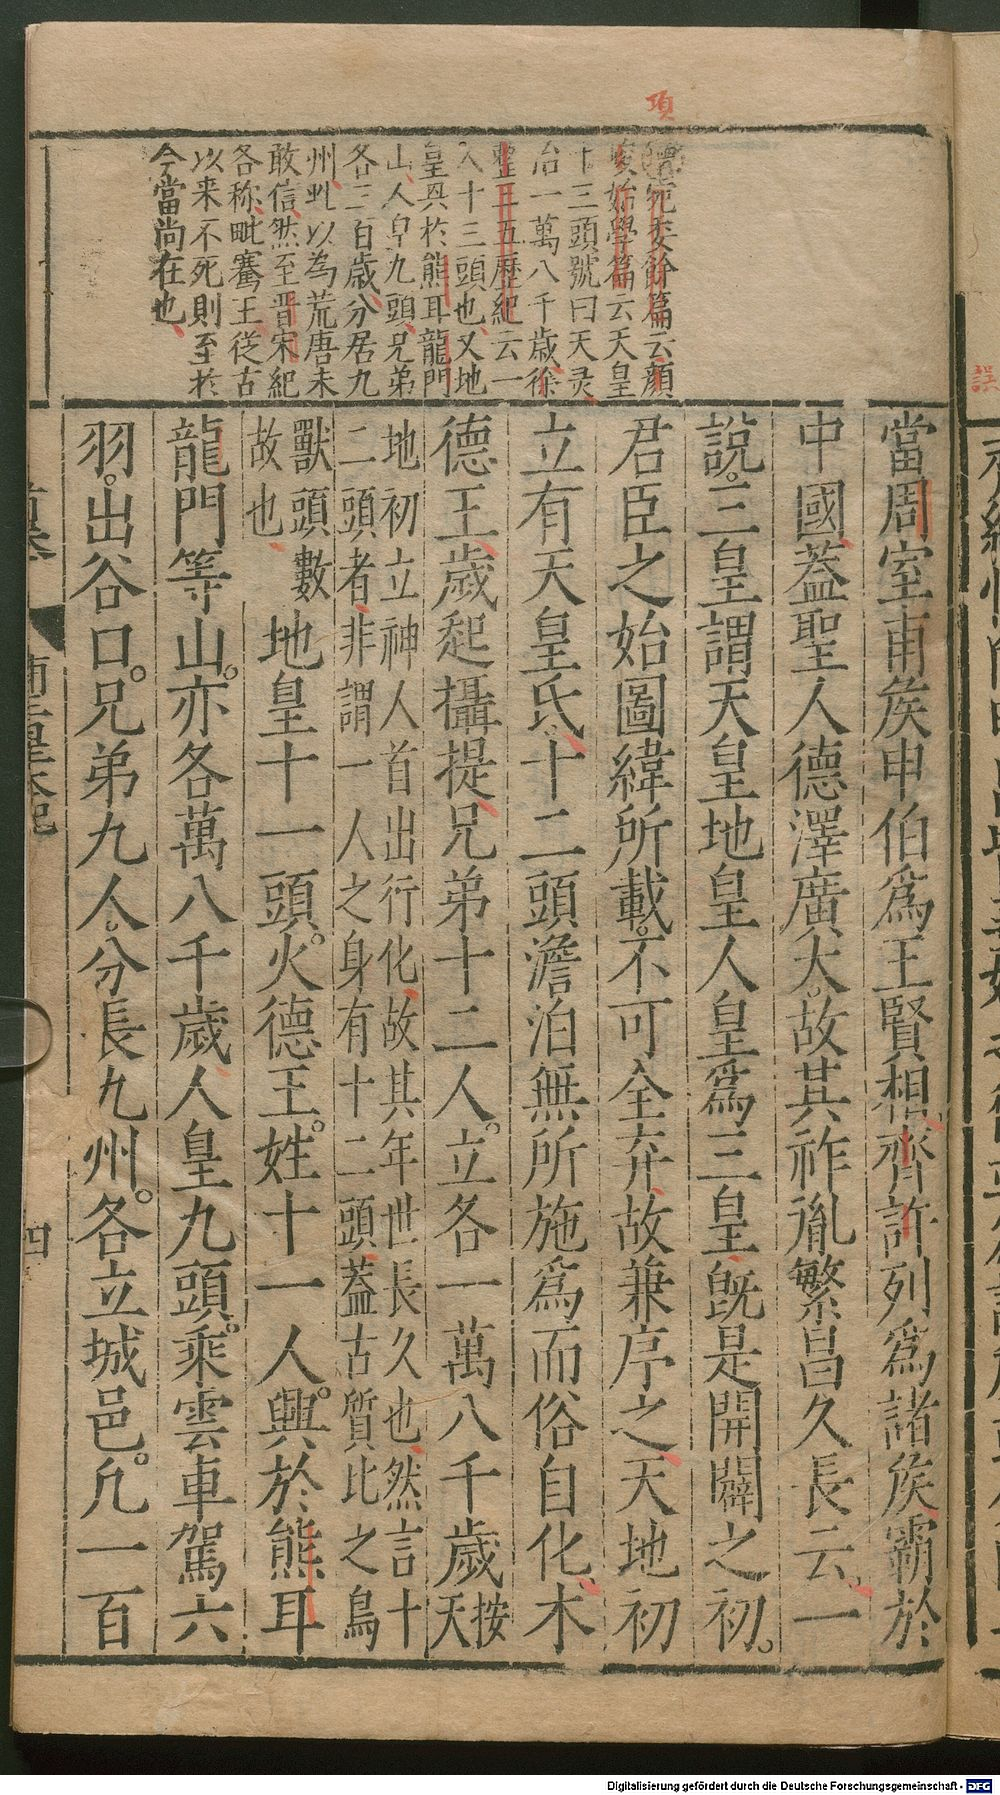 項
德宛委餘篇云顏
峻始學篇云天皇
十三頭號曰天灵
治一萬八千歲徐
整三五歷紀云一
人十三頭也又地
皇興於熊耳龍門
山人皇九頭兄弟
各三百歲分居九
州此以為荒唐未
敢信然至晋宋紀
各称毗騫王從古
以来不死則至於
今當尚在也
當周室甫矦申伯爲王賢相齊許列爲諸矦霸於
中國蓋聖人德澤廣大故其祚胤繁昌久長云一
說三皇謂天皇地皇人皇爲三皇旣是開闢之初
君臣之始圖緯所載不可全弃故兼序之天地初
立有天皇氏十二頭澹泊無所施爲而俗自化木
德王歲起攝提兄弟十二人立各一萬八千歲按
天
地初立神人首出行化故其年世長久也然言十
二頭者非謂一人之身有十二頭蓋古質比之鳥
獸頭數
故也
地皇十一頭火德王姓十一人興於熊耳
龍門等山亦各萬八千歲人皇九頭乘雲車駕六
羽出谷口兄弟九人分長九州各立城邑凢一百
首卷
皇本紀
四
誤
Digitalisierung gefördert durch die Deutsche Forschungsgemeinschaft - DFG